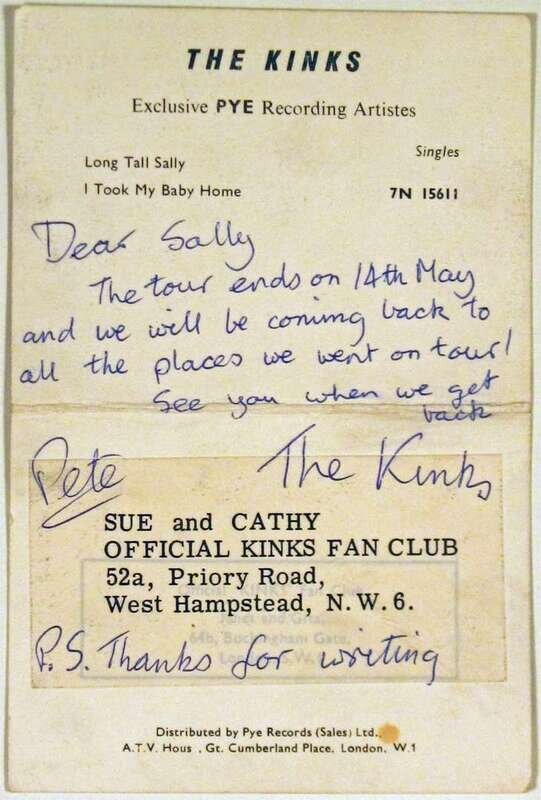 THE KINKS
Exclusive PYE Recording Artistes
Singles
Long Tall Sally
I Took My Baby Home 7N 15611
Dear Sally
The tour ends on 14th May
and we will be coming back to
all the places we went on tour!
See you when we get
back
Pete The Kinks
SUE and CATHY
OFFICIAL KINKS FAN CLUB
52a, Priory Road,
West Hampstead, N.W.6.
Official KINKS Fan Club
Janet and Gita,
64b, Buckingham Gate,
London, S.W.
P.S. Thanks for writing
Distributed by Pye Records (Sales) Ltd.,
A.T.V. Hous , Gt. Cumberland Place, London, W.1